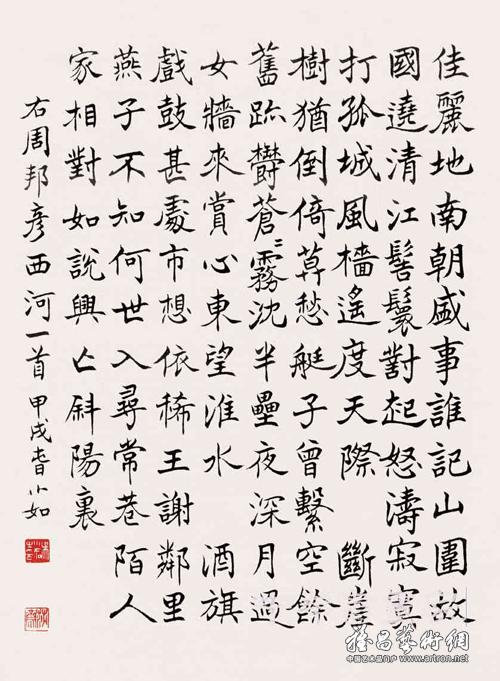 佳麗地南朝盛事誰記山圍故
國遶清江髻鬟對起怒濤寂寞
打孤城風檣遙度天際 斷崖
樹猶倒倚莫愁艇子曾繫空餘
舊跡鬱蒼〻霧沈半壘夜深月過
女牆來賞心東望淮水 酒旗
戲鼓甚處市想依稀王謝鄰里
燕子不知何世入尋常巷陌人
家相對如說興亡斜陽裏
右周邦彥西河一首 甲戌春小如
雅昌藝術網
中国艺术品门户 www.artron.net